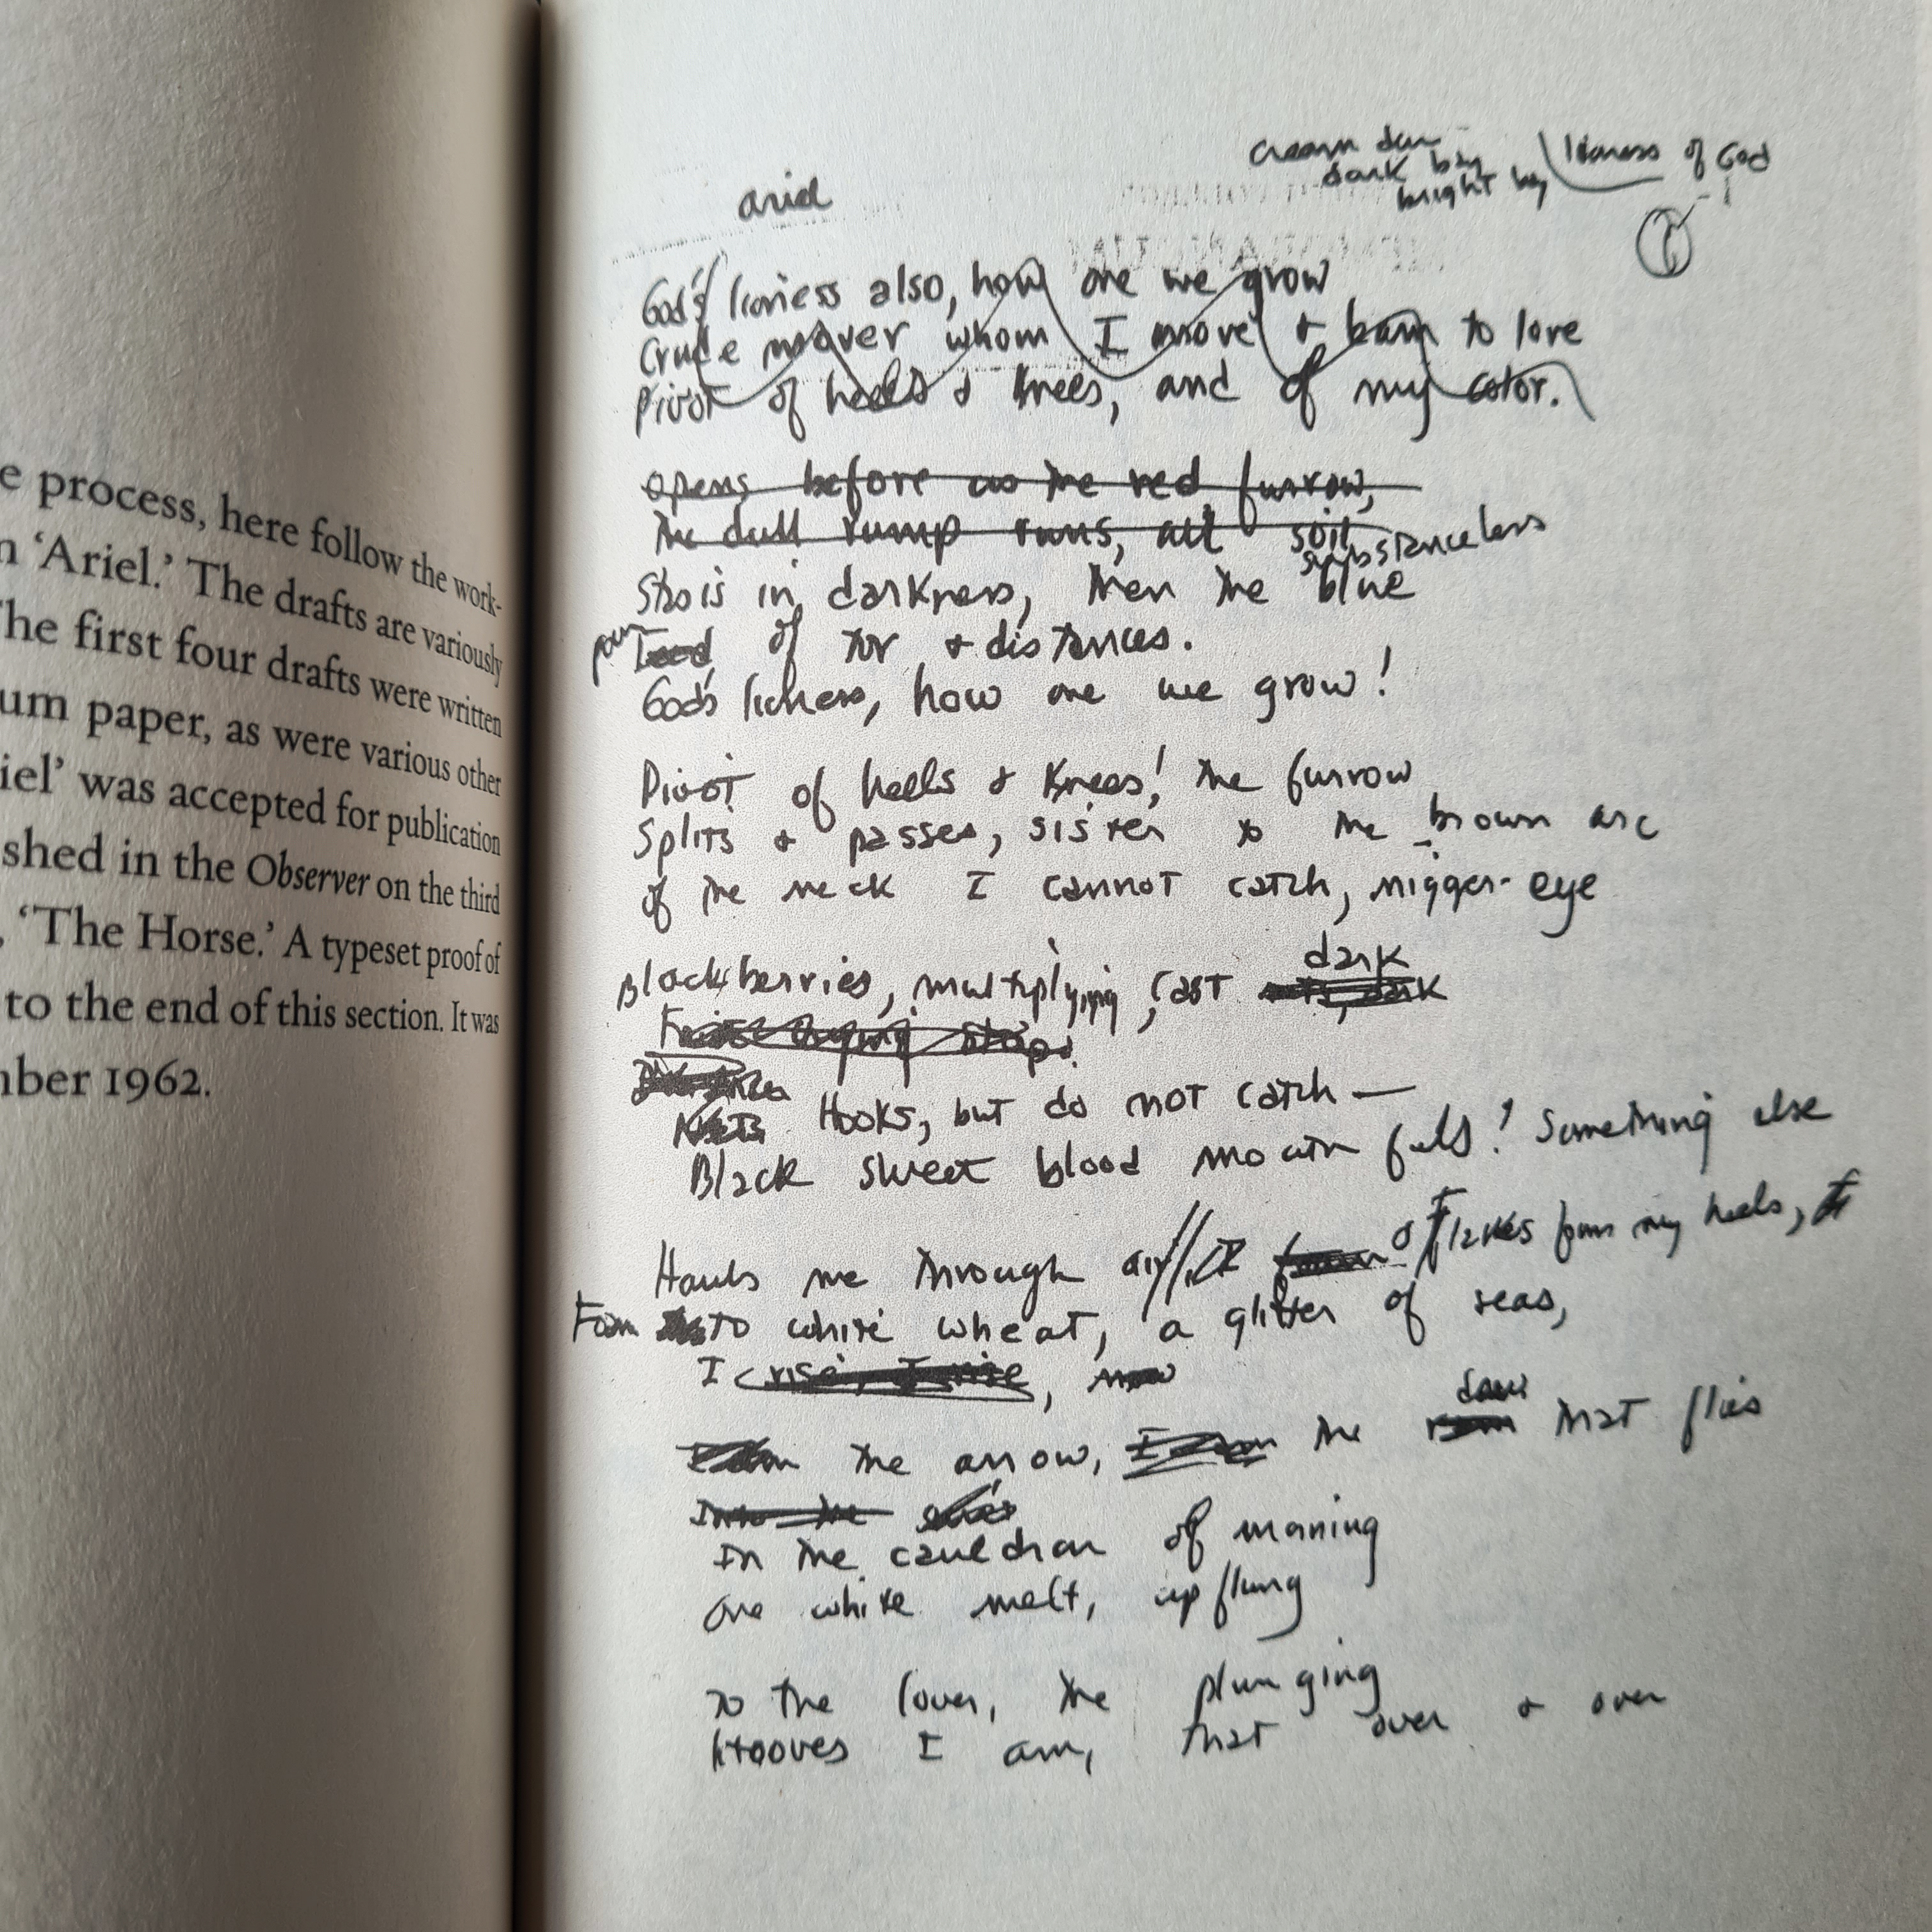 e process, here follow the work-
n ‘Ariel.’ The drafts are variously
The first four drafts were written
um paper, as were various other
iel’ was accepted for publication
shed in the Observer on the third
, ‘The Horse.’ A typeset proof of
to the end of this section. It was
mber 1962.
dark bay
bright bay
lioness of God
①
ariel
God's lioness also, how one we grow
Crude mover whom I move & burn to love
Pivot of heels & knees, and of my color.
opens before us the red furrow,
The dull rump runs, all soil
substanceless
Stasis in darkness, then the blue
pour of tor & distances.
God's lioness, how one we grow!
Pivot of heels & Knees! The furrow
Splits & passes, sister to the brown arc
of the neck I cannot catch, nigger-eye
dark
Blackberries, multiplying, cast dark
Hooks, but do not catch —
Black sweet blood mouthfuls! Something else
Hauls me through air // flakes from my heels, I
Foam to white wheat, a glitter of seas,
I rise, I rise, now
dew
the arrow, the that flies
Into the
In the cauldron of morning
One white melt, upflung
to the lover, the plunging
Hooves I am, that over & over